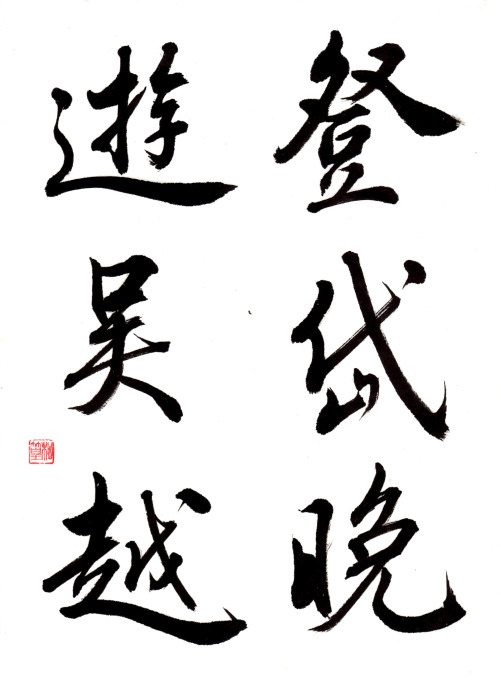 登岱晚
遊吴越